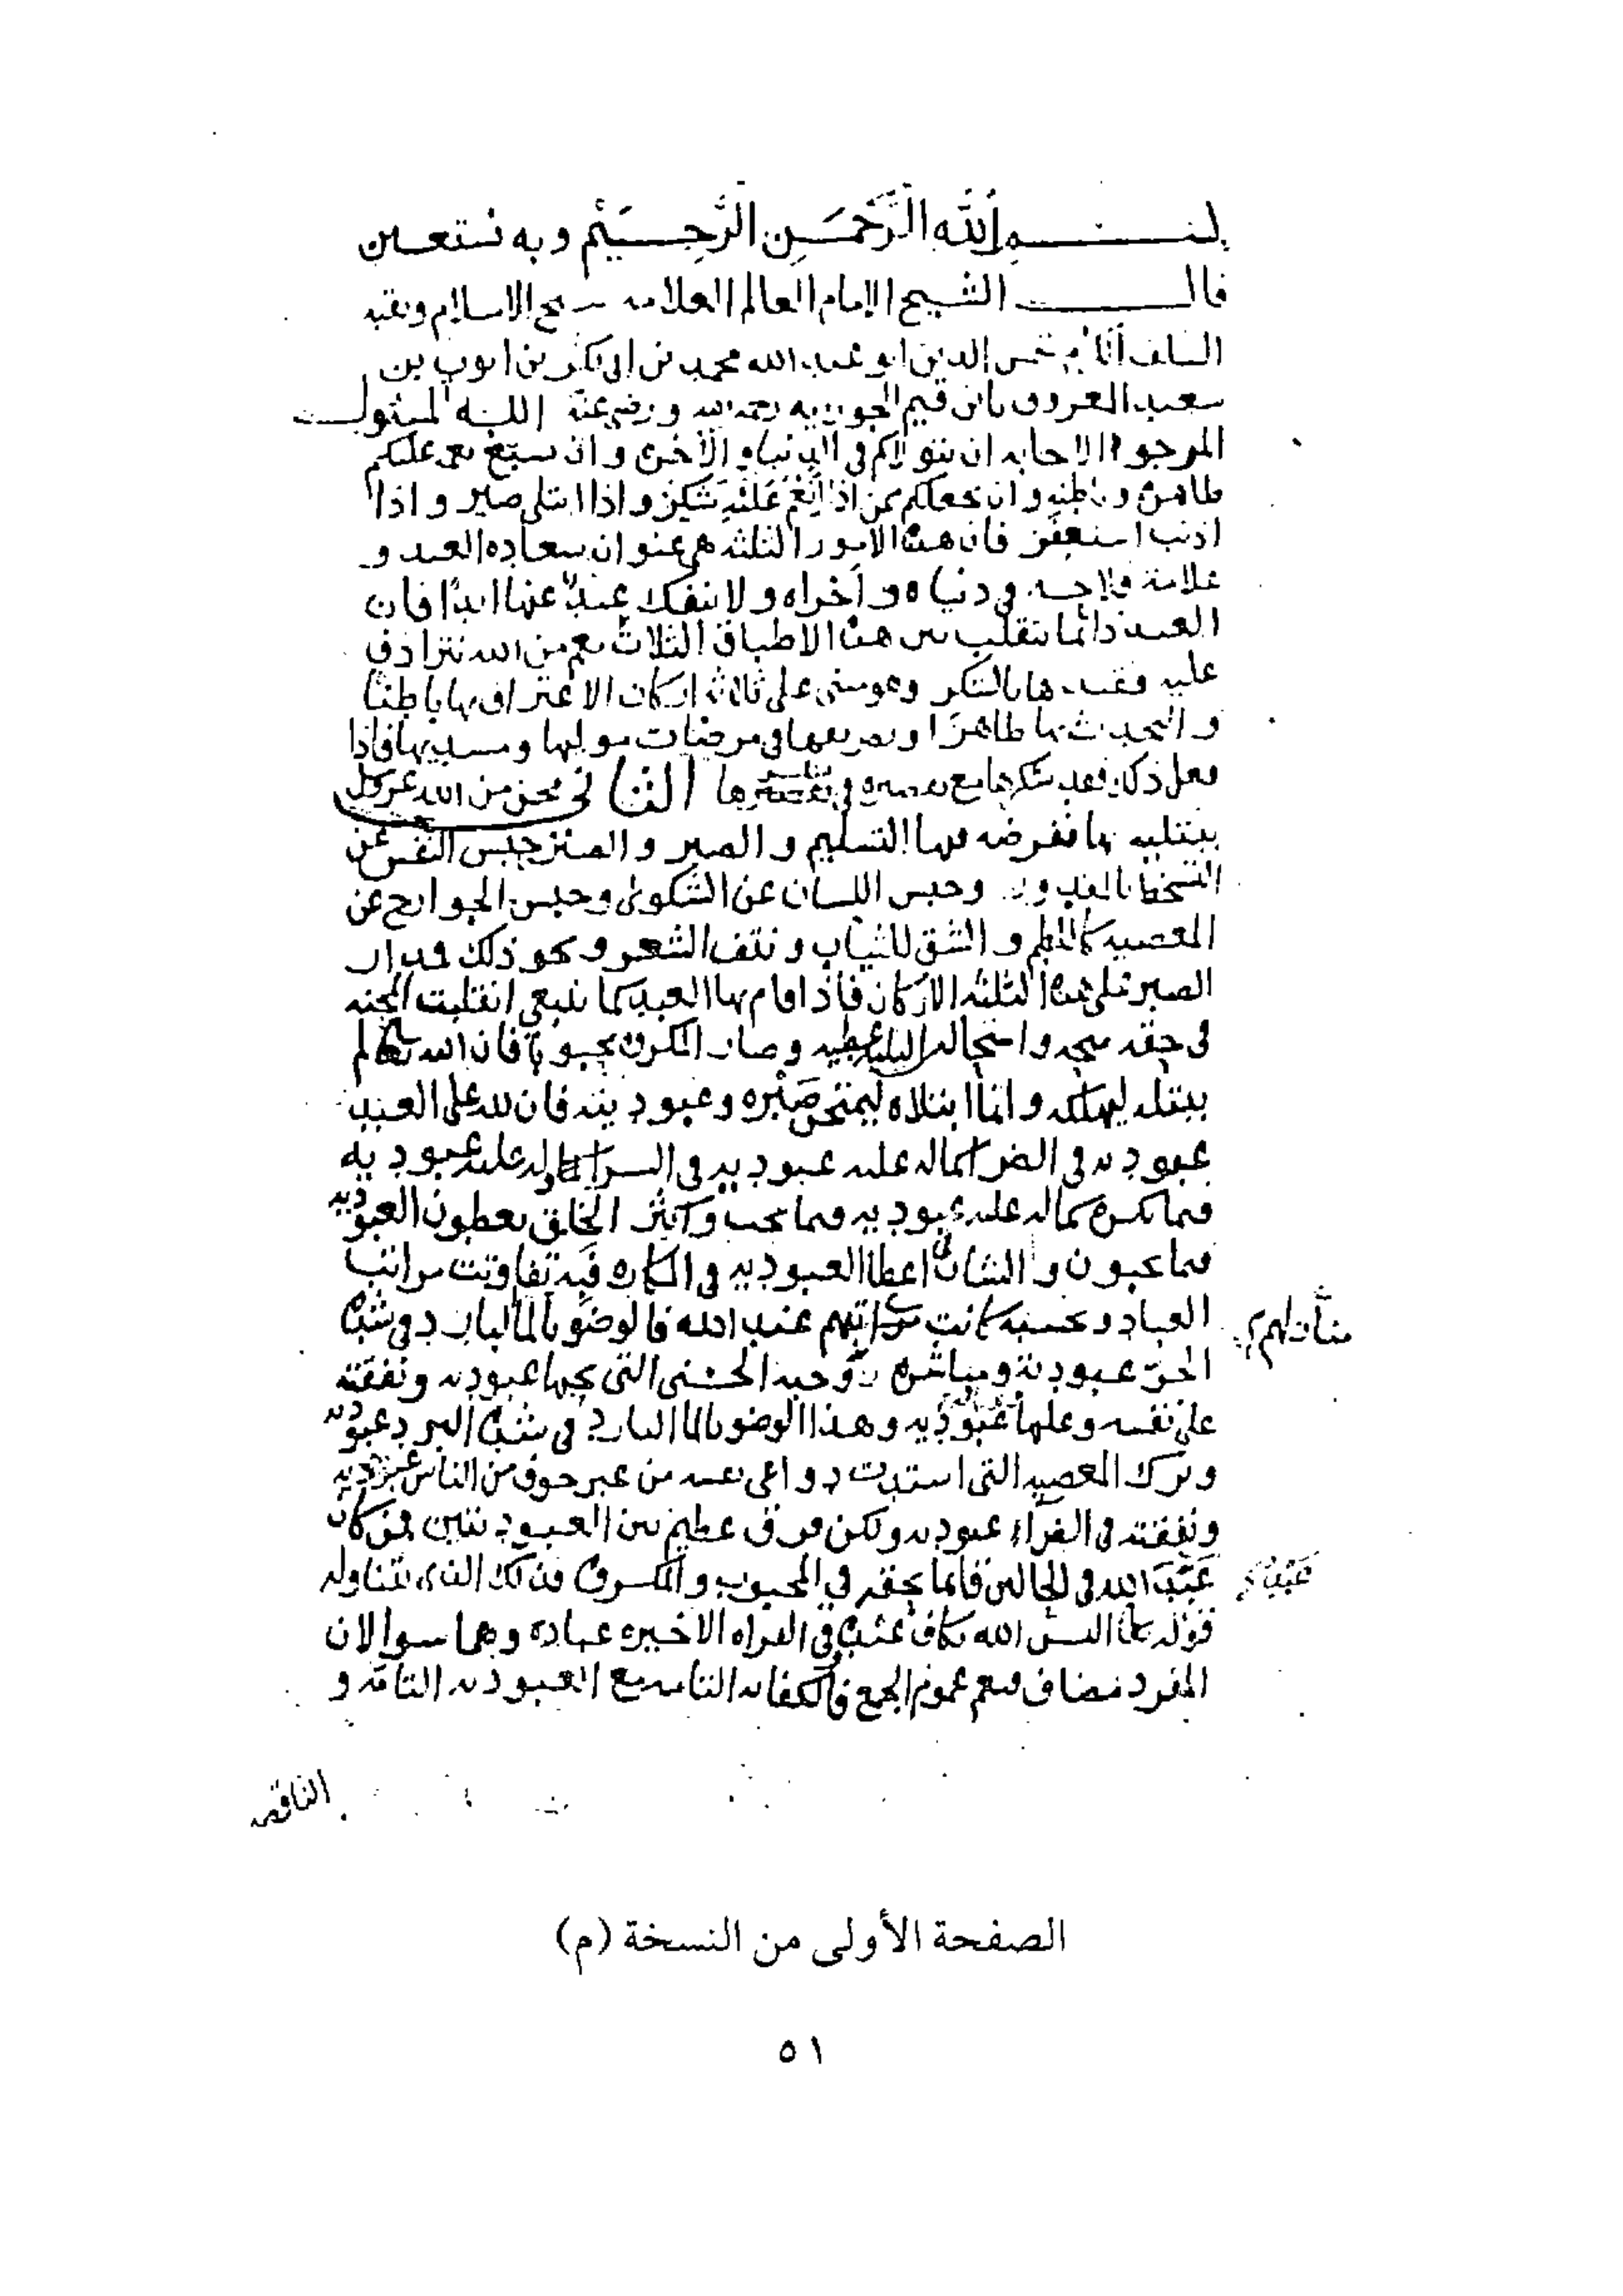 بسم الله الرَّحْمَنِ الرَّحِيْم وبه نستعين
قال الشيخ الامام العالم العلامه شيخ الاسلام وبقيه
السلف شمس الدين ابو عبد الله محمد بن ابي بكر بن ايوب بن
سعيد المعروف بابن قيم الجوزيه رحمه الله ورضي عنه الله المسئول
المرجو الاجابه ان يتولاكم في الدنيا والاخرى وان يسبغ نعمه عليكم
ظاهرة وباطنه وان يجعلكم ممن اذا اُنعِمَ عَلَيْهِ شكر واذا ابتلى صبر واذا
اذنب استغفر فان هذه الامور الثلثه هى عنوان سعاده العبد و
علامة فلاحه في دنياه واُخراه ولا ينفك عبدٌ عنها ابدًا فان
العبد دائما يتقلب بين هذه الاطباق الثلاث نعم من الله تترادف
عليه فقيدها بالشكر وهو مبنى على ثلاثة اركان الاعتراف بها باطنًا
والتحدث بها ظاهرًا وتصريفها في مرضات موليها ومسديها فاذا
فعل ذلك فقد شكرها مع تقصيره في الثاني محن من الله عز وجل
يبتليه بها ففرضه فيها التسليم والصبر والصبر حبس النفس عن
التسخط بالمقدور وحبس اللسان عن الشكوى وحبس الجوارح عن
المعصيه كاللطم والشق للثياب ونتف الشعر ونحو ذلك فمدار
الصبر على هذه الثلثه الاركان فاذا قام بها العبد كما ينبغي انقلبت المحنه
في حقه منحه واستحاله البليه عطيه وصار المكروه محبوبا فان الله لم
يبتله ليهلكه وانما ابتلاه ليمتحن صَبْره وعبوديته فان لله على العبد
عبوديه في الضرا كماله عليه عبوديه في السرا وله عليه عبوديه
فيما يكره كماله عليه عبوديه فيما يحب واكثر الخلق يعطون العبوديه
فيما يحبون والشان في اعطا العبوديه في المكاره فبه تفاوتت مراتب
العباد وبحسبه كانت مراتبهم عند الله فالوضو بالما البارد في شدة
منازلهم
الحرّ عبوديه ومباشره زوجته الحسنى التي يحبها عبوديه ونفقته
على نفسه وعليها عبوديه وهذا الوضو بالما البارد في شدة البرد عبوديه
وترك المعصيه التي استدت دواعى نفسه من غير خوف من الناس عبوديه
ونفقته في الضراء عبوديه ولكن فرق عظيم بين العبوديتين فمن كان
عَبْدَ الله في الحالين قائما بحقه في المحبوب والمكروه فذلك الذى تناوله
عَبْدُه
قوله تعالى اليس الله بكاف عَبْدَه وفي القراه الاخيره عباده وهما سوا لان
المفرد مضاف فيعم عموم الجمع فالكفايه التامه مع العبوديه التامه و
الناقصه
الصفحة الأولى من النسخة (م)
٥١